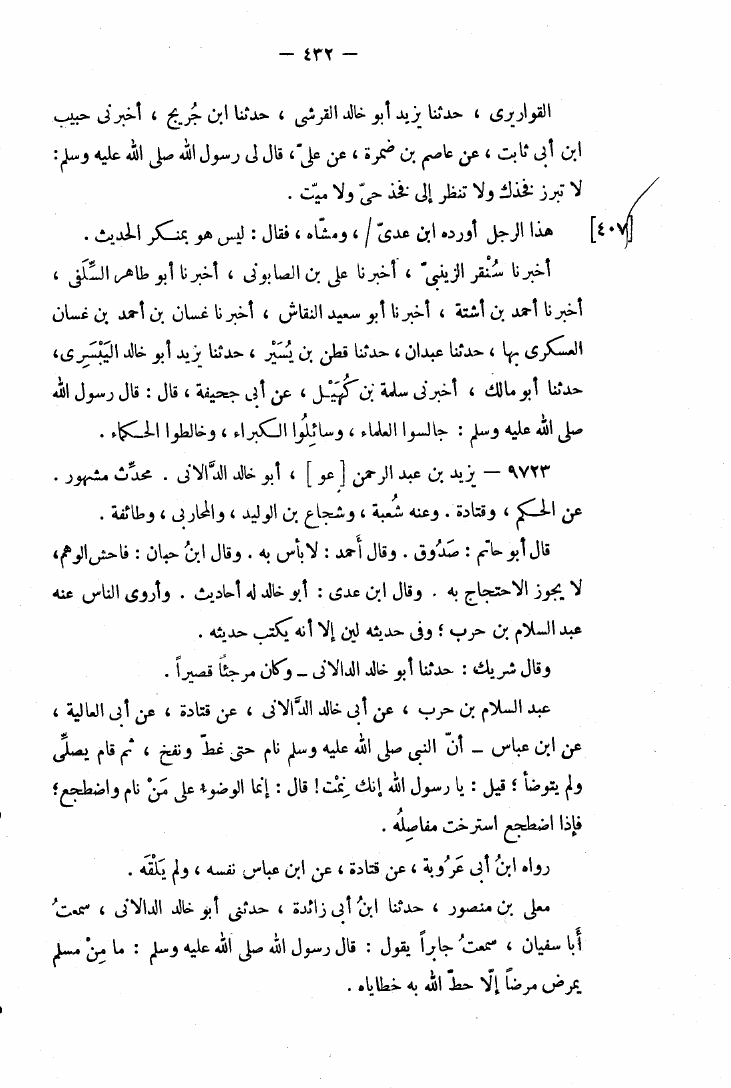 — ٤٣٢ —
القواريرى ، حدثنا يزيد أبو خالد القرشى ، حدثنا ابن جُريج ، أخبرنى حبيب
ابن أبى ثابت ، عن عاصم بن ضمرة ، عن علىّ ، قال لى رسول الله صلى الله عليه وسلم :
لا تبرز فخذك ولا تنظر إلى فخذ حىّ ولا ميّت .
[٤٠٧] هذا الرجل أورده ابن عدىّ / ، ومشّاه ، فقال : ليس هو بمنكر الحديث .
أخبرنا سُنْقر الزينبىّ ، أخبرنا على بن الصابونى ، أخبرنا أبو طاهر السِّلَفى ،
أخبرنا أحمد بن أشتة ، أخبرنا أبو سعيد النقاش ، أخبرنا غسان بن أحمد بن غسان
العسكرى بها ، حدثنا عبدان ، حدثنا قطن بن يُسَيْر ، حدثنا يزيد أبو خالد اليَبْسَرِى ،
حدثنا أبو مالك ، أخبرنى سلمة بن كُهَيْل ، عن أبى جحيفة ، قال : قال رسول الله
صلى الله عليه وسلم : جالسوا العلماء ، وسائِلُوا الكبراء ، وخالطوا الحكماء .
٩٧٢٣ — يزيد بن عبد الرحمن [ عو ] ، أبو خالد الدَّالانى . محدِّث مشهور .
عن الحكم ، وقتادة . وعنه شُعبة ، وشجاع بن الوليد ، والمحاربى ، وطائفة .
قال أبو حاتم : صَدُوق . وقال أحمد : لا بأس به . وقال ابنُ حبان : فاحش الوهم ،
لا يجوز الاحتجاج به . وقال ابن عدى : أبو خالد له أحاديث . وأروى الناس عنه
عبد السلام بن حرب ؛ وفى حديثه لين إلا أنه يكتب حديثه .
وقال شريك : حدثنا أبو خالد الدالانى — وكان مرجئًا قصيراً .
عبد السلام بن حرب ، عن أبى خالد الدَّالانى ، عن قتادة ، عن أبى العالية ،
عن ابن عباس — أنّ النبى صلى الله عليه وسلم نام حتى غطّ ونفخ ، ثم قام يصلِّى
ولم يتوضأ ؛ قيل : يا رسول الله إنك نِمْت ! قال : إنما الوضوء على مَنْ نام واضطجع ؛
فإذا اضطجع استرخت مفاصِلُه .
رواه ابنُ أبى عَرُوبة ، عن قتادة ، عن ابن عباس نفسه ، ولم يَلْقَه .
معلى بن منصور ، حدثنا ابنُ أبى زائدة ، حدثنى أبو خالد الدالانى ، سمعتُ
أبا سفيان ، سمعتُ جابراً يقول : قال رسول الله صلى الله عليه وسلم : ما مِنْ مسلم
يمرض مرضاً إلّا حطّ الله به خطاياه .